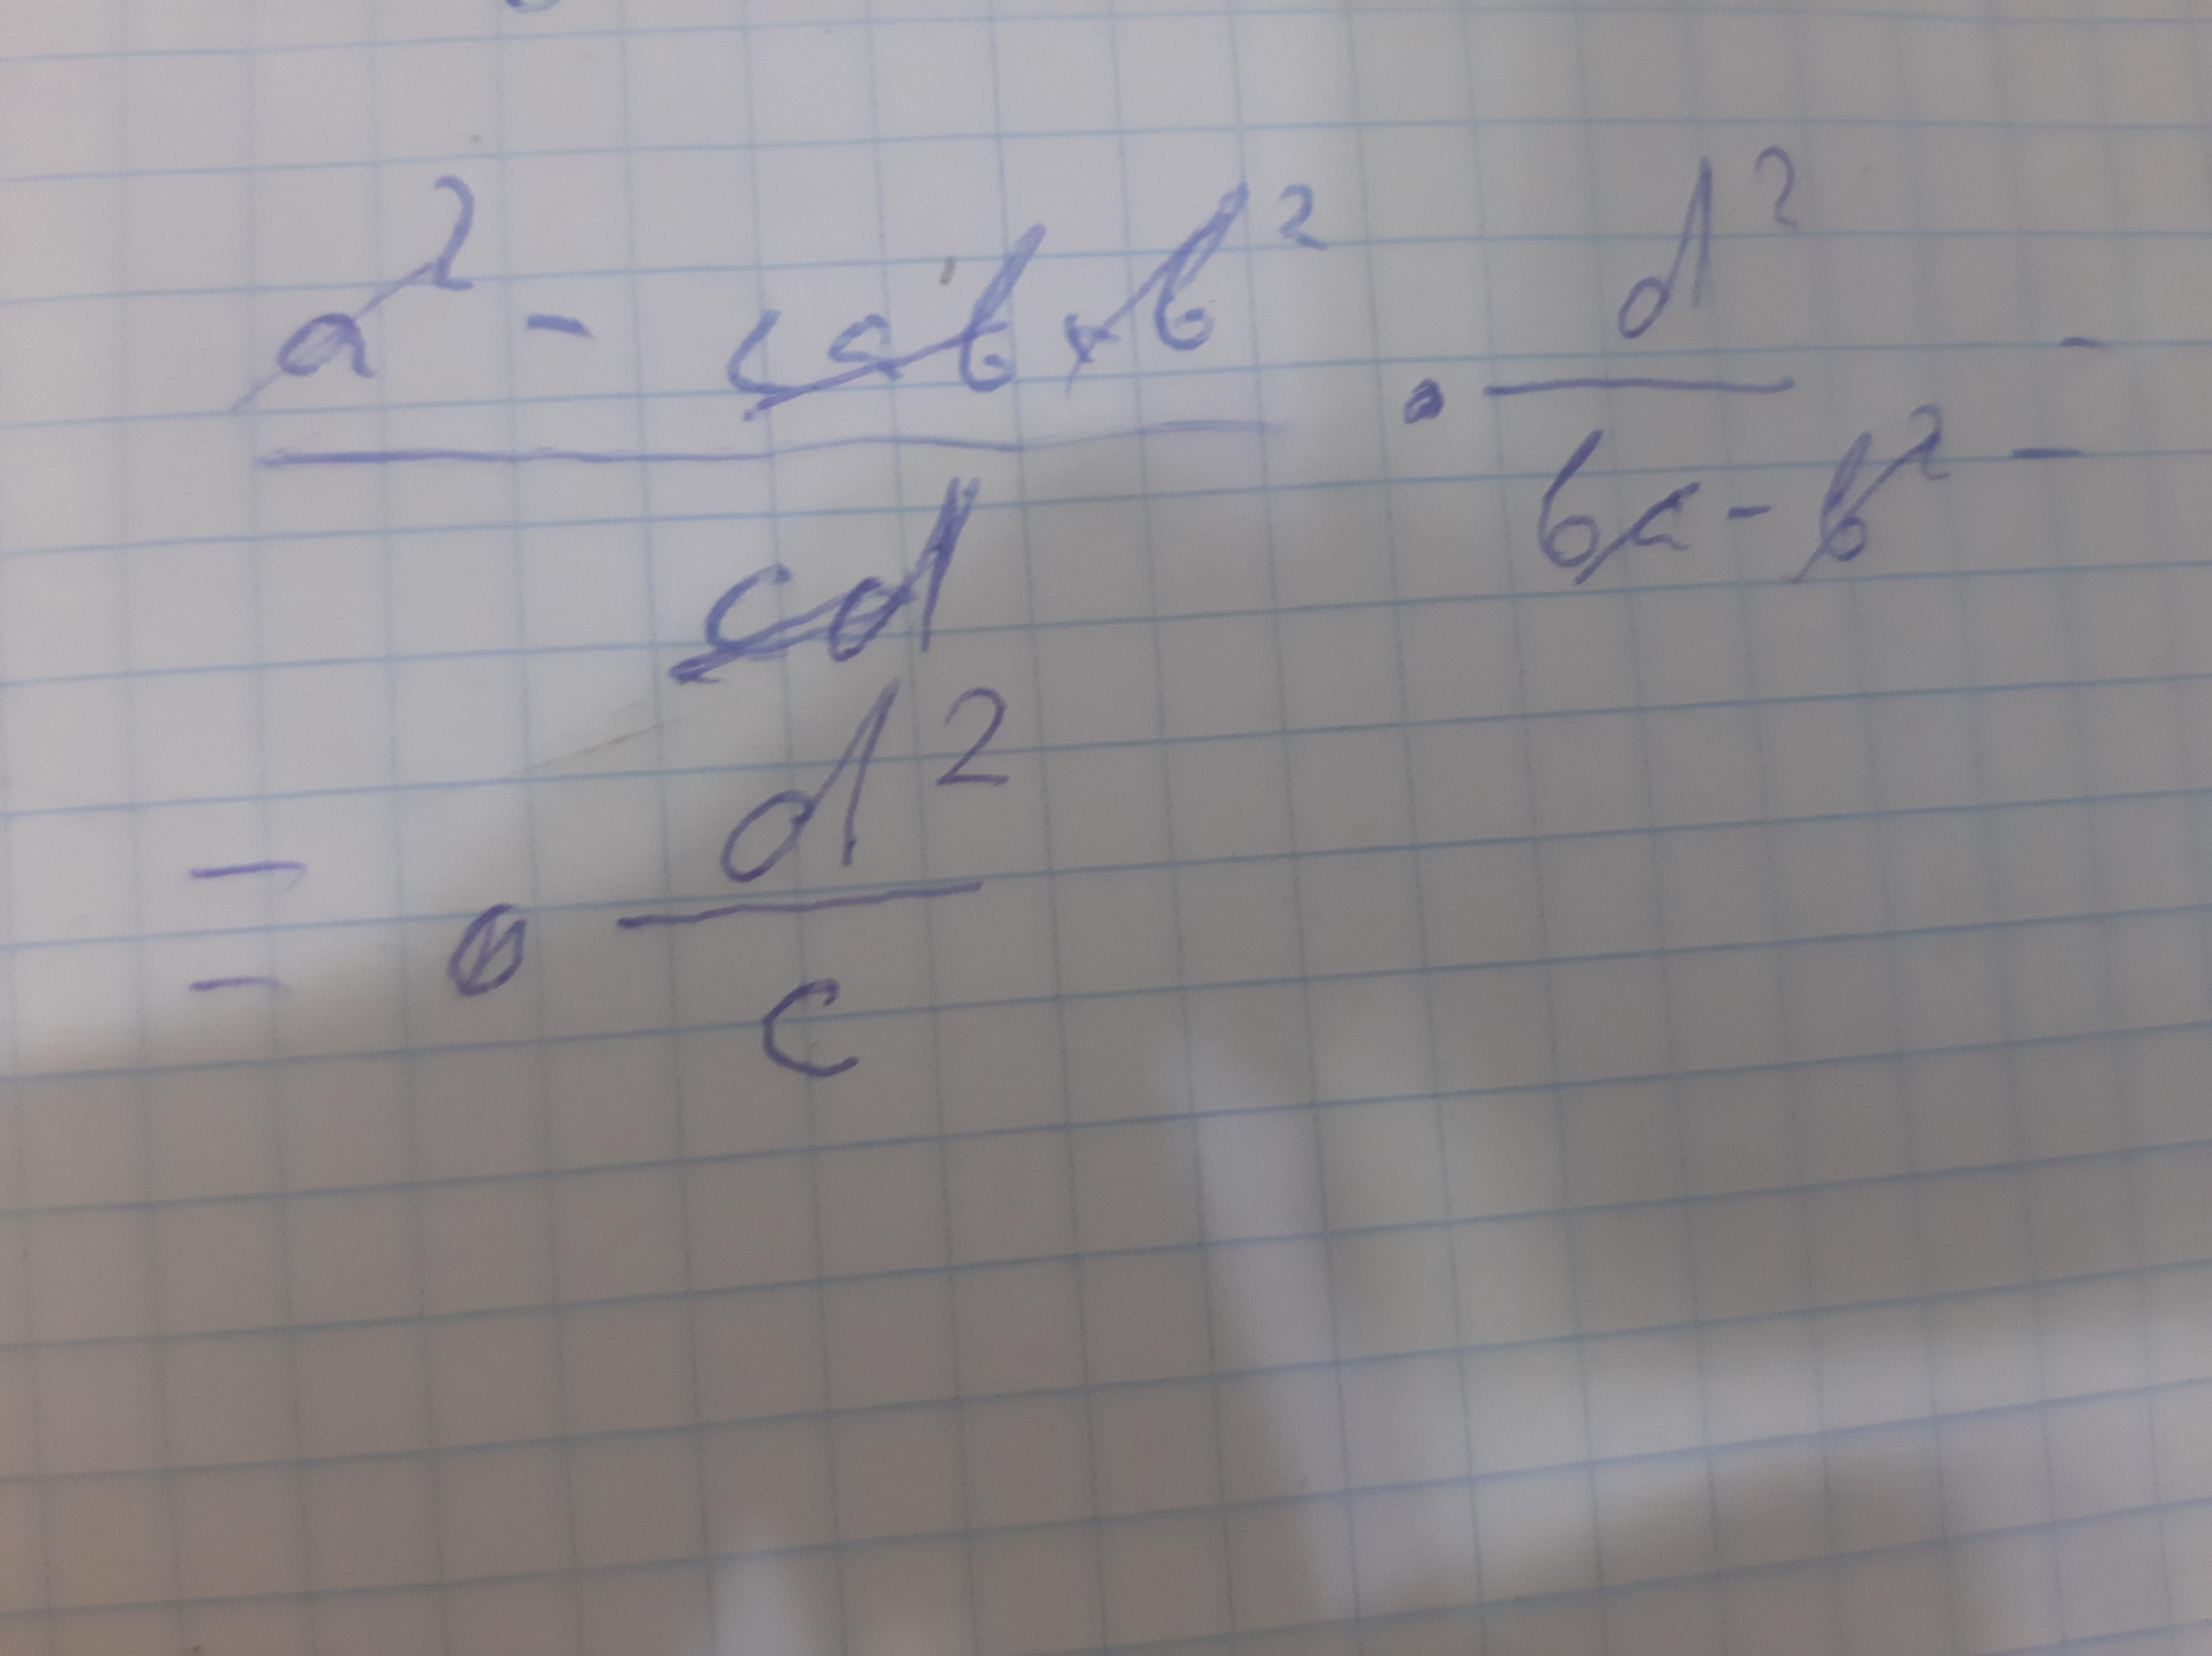 a² - cab + b² / cd · d² / ba - b² =
= · d² / c